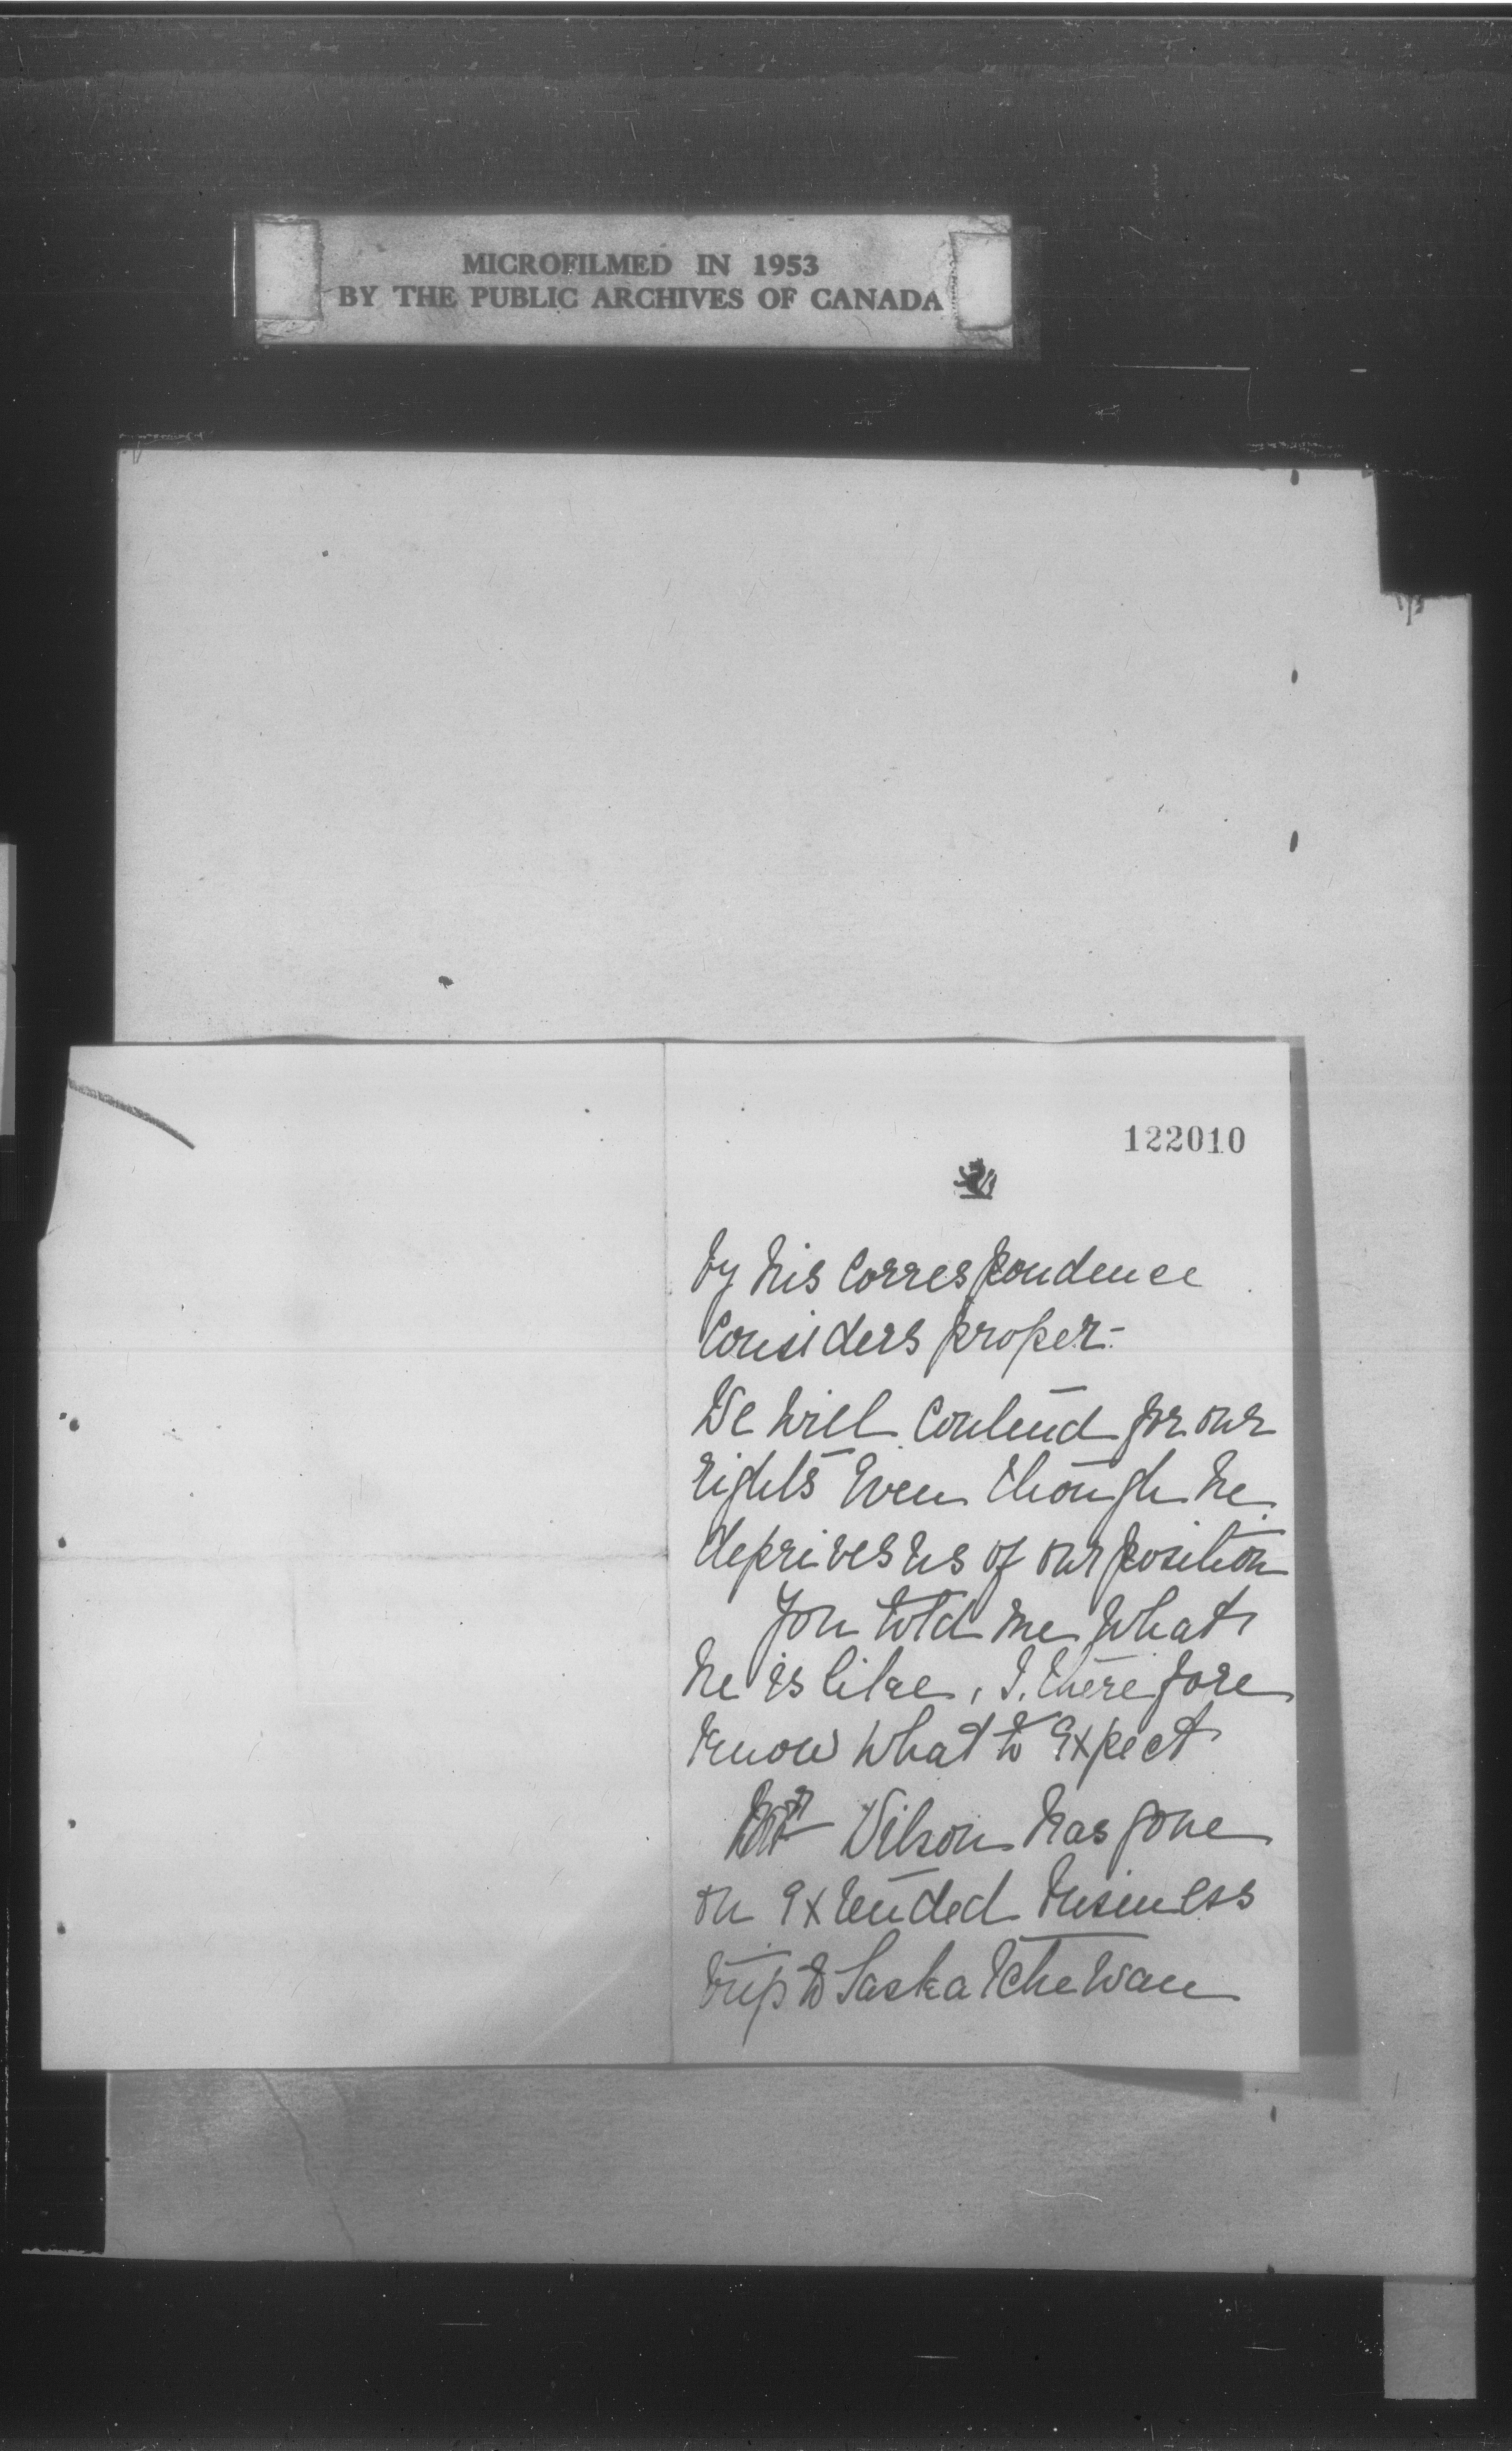 MICROFILMED IN 1953
BY THE PUBLIC ARCHIVES OF CANADA
122010
by his correspondence
considers proper -
We will contend for our
rights even though he
deprives us of our position
You told me what
he is like, I therefore
know what to expect
Mr Wilson has gone
on extended business
trip to Saskatchewan